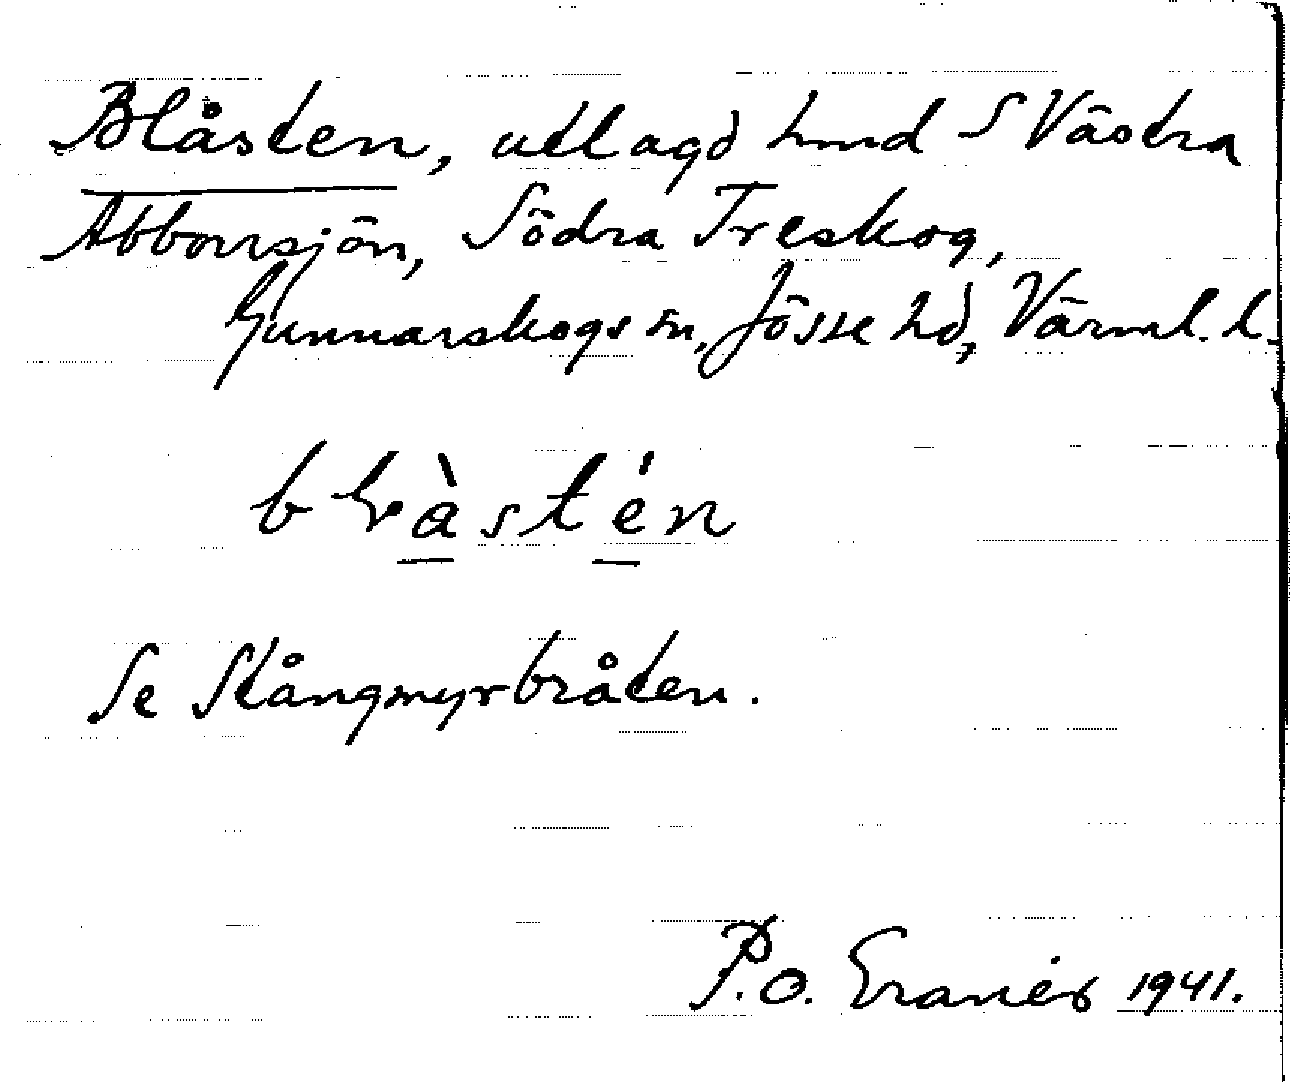 Blåsten, utlagd lund S Västra
Abborrsjön, Södra Treskog,
Gunnarskogs sn, Jösse hd, Värml. l.
blåstén
Se Stångmyrbråten.
P.O. Eranér 1941.